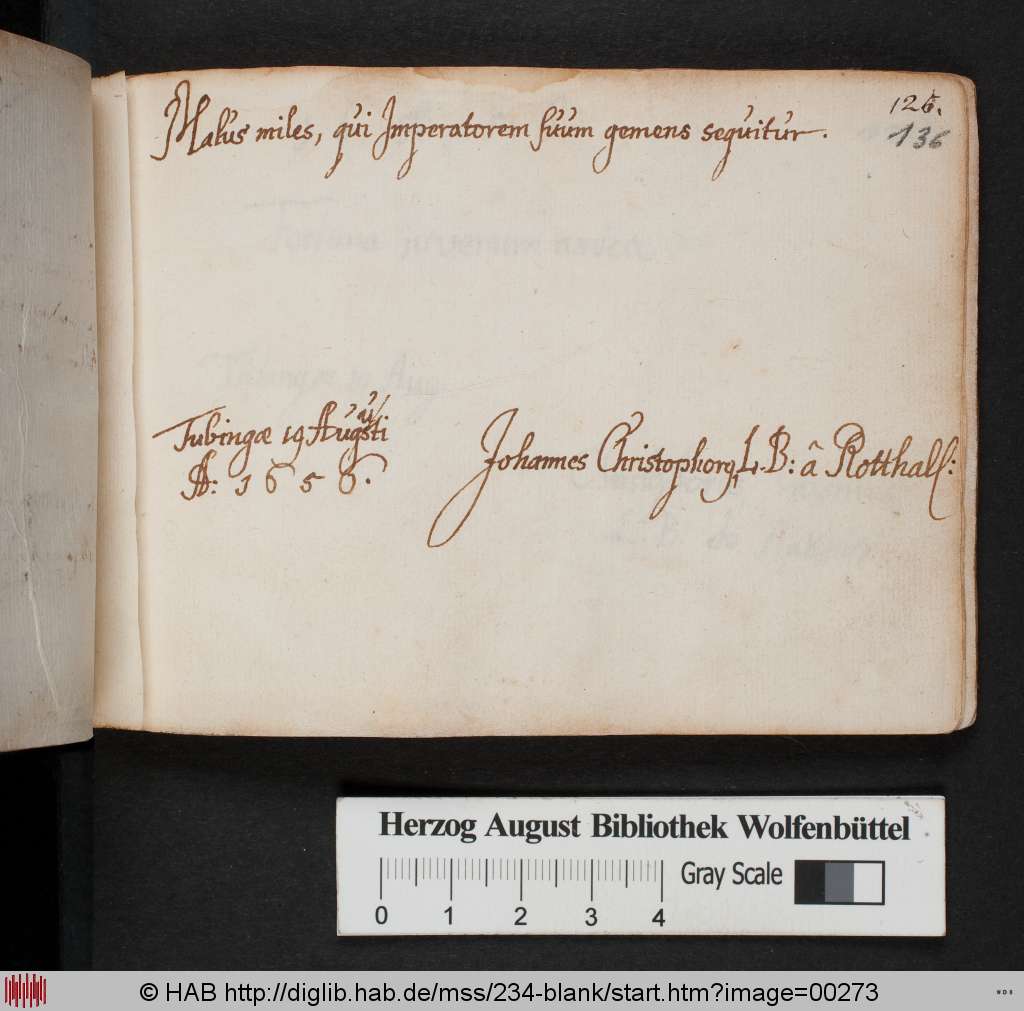 Malus miles, qui Imperatorem suum gemens sequitur.
125.
136
Tubingæ 19 Augusti
Aº: 1656.
Johannes Christophorꝰ L. B: â Rotthall:
Herzog August Bibliothek Wolfenbüttel
Gray Scale
0 1 2 3 4
© HAB http://diglib.hab.de/mss/234-blank/start.htm?image=00273